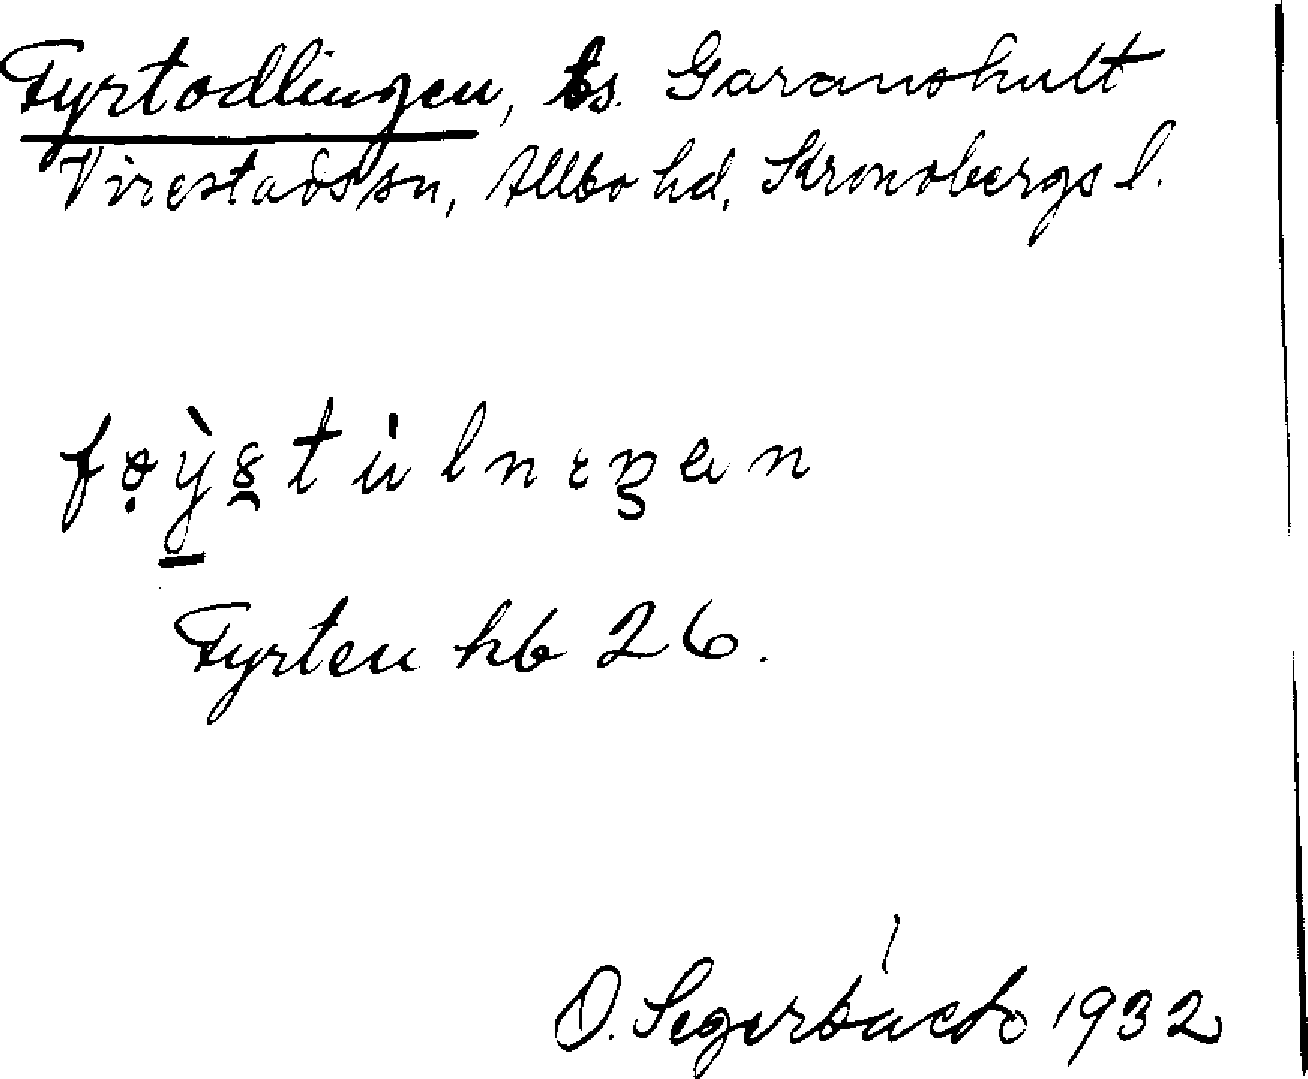 Fyrtodlingen, ts. Garanshult
Virestads sn, Allbo hd, Kronobergs l.
Fyrten hb 26.
O. Segerbäck 1932